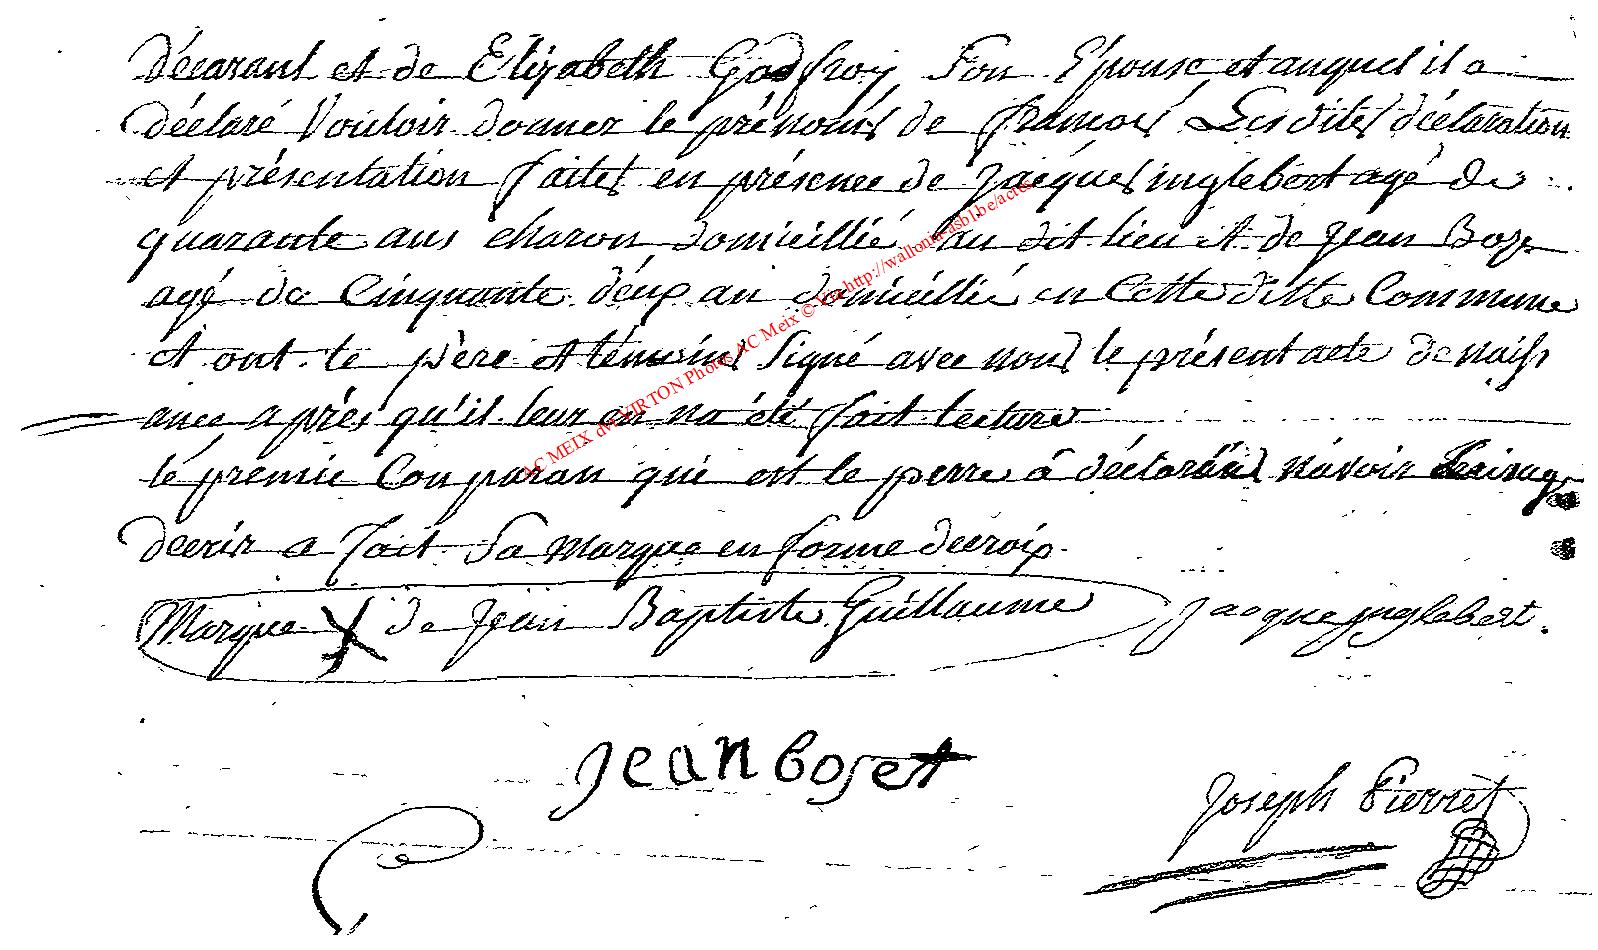 décarant et de Elizabeth Godfroy son Epouse et auquel il a
déclaré Vouloir donner le prénoms de françois Lesdites déclaration
et présentation faites en présence de Jacques inglebert agé de
quarante ans charon domicillié au dit lieu et de Jean Boze
agé de Cinquante deux an domicillié en Cette ditte Commune
et ont le père et témoins signé avec nous le présent acte de naiss
ance après qu'il leur en na été fait lecture
le premie Conparan qui est le perre à déclaran n'avoir
decrir a fait Sa marque en forme decroix
Marque X de Jean Baptiste Guillaume Jacque jnglebert.
jean boset
Joseph Pierret
AC MEIX dvt VIRTON Photos AC Meix © Via http://wallonia-asbl.be/actes